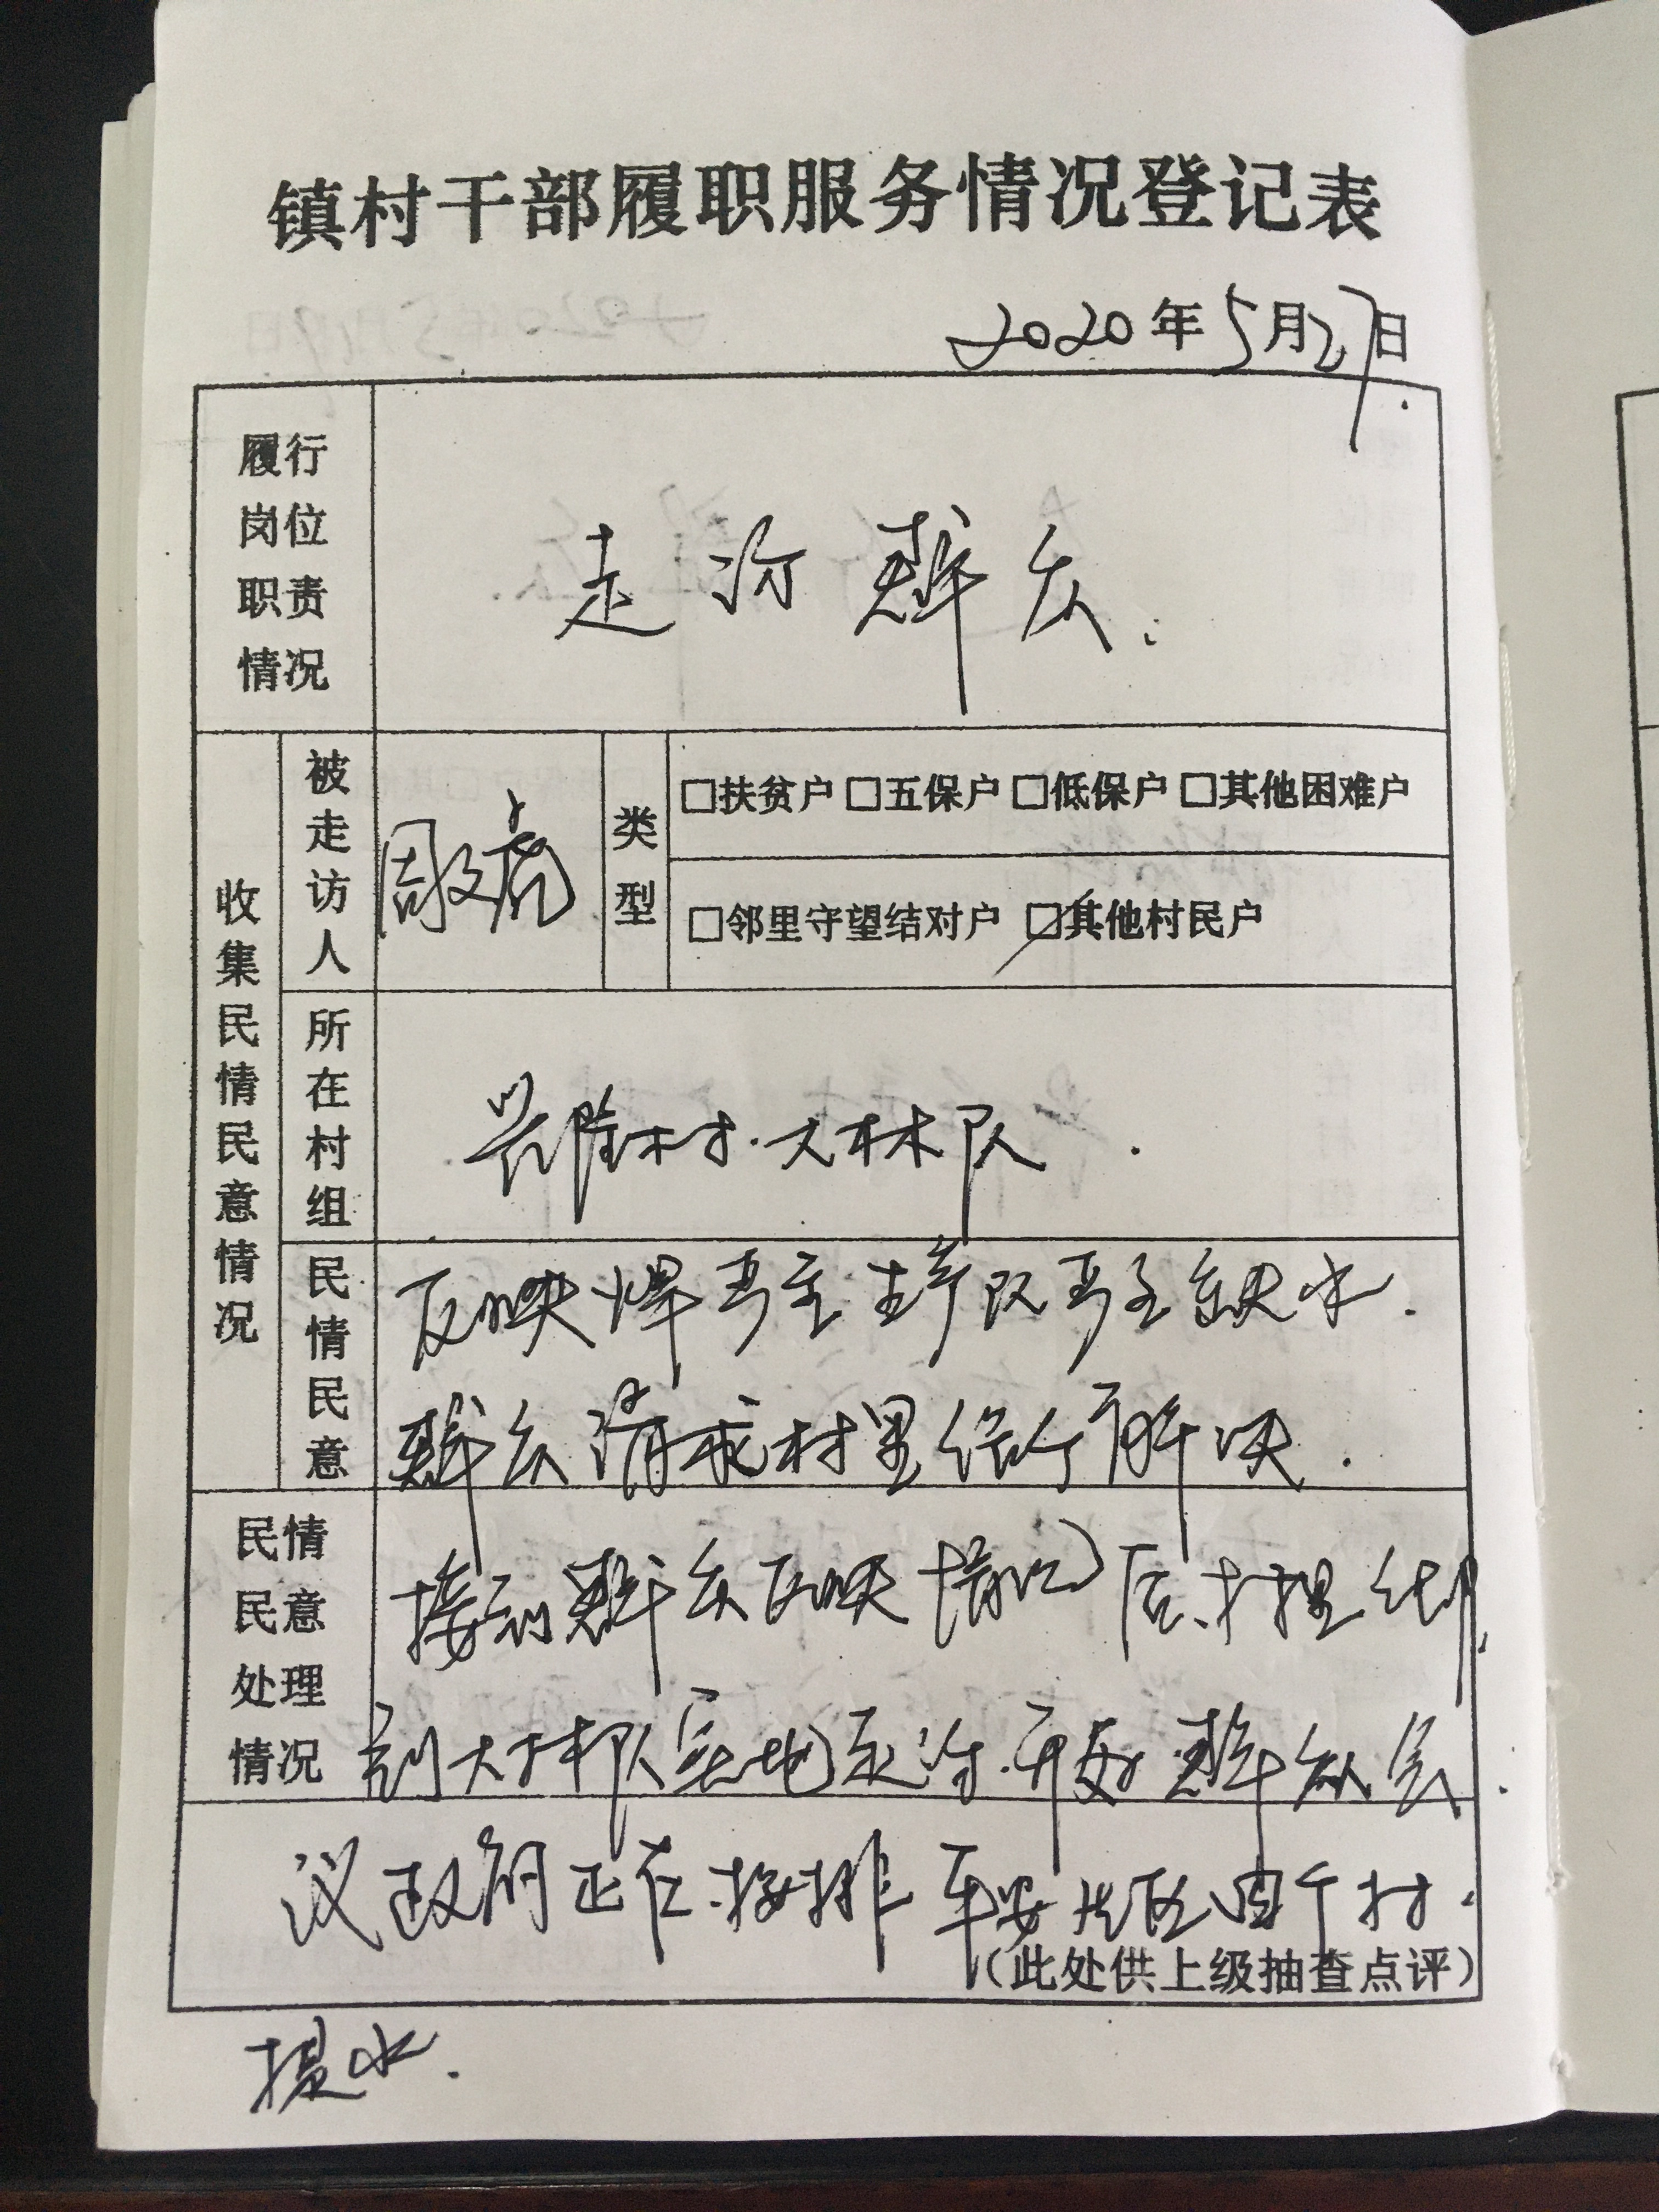 镇村干部履职服务情况登记表
2020年5月27日
履行岗位职责情况
走访群众.
收集民情民意情况
被走访人
类型
□扶贫户 □五保户 □低保户 □其他困难户
□邻里守望结对户 ☑其他村民户
所在村组
兴隆村.大林队
民情民意
反映旱严重 队严重缺水.
群众请求村里给予解决.
民情民意处理情况
接到群众反映情况后.村里组
到大林队实地走访.开好群众会
议政府正在按排 四个村.
(此处供上级抽查点评)
提水.